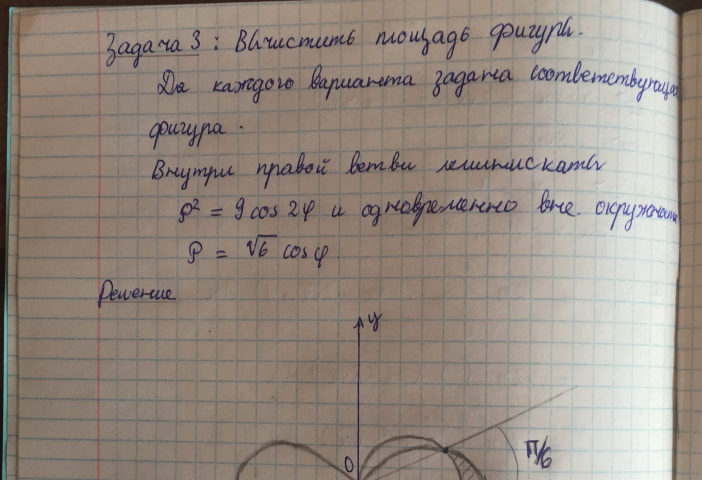 Задача 3 : Вычистить площадь фигуры.
Да каждого варианта задана соответствующая
фигура.
Внутри правой ветви лемнискаты
ρ² = 9 cos 2φ и одновременно вне окружности
ρ = √6 cos φ.
Решение
y
0
π/6